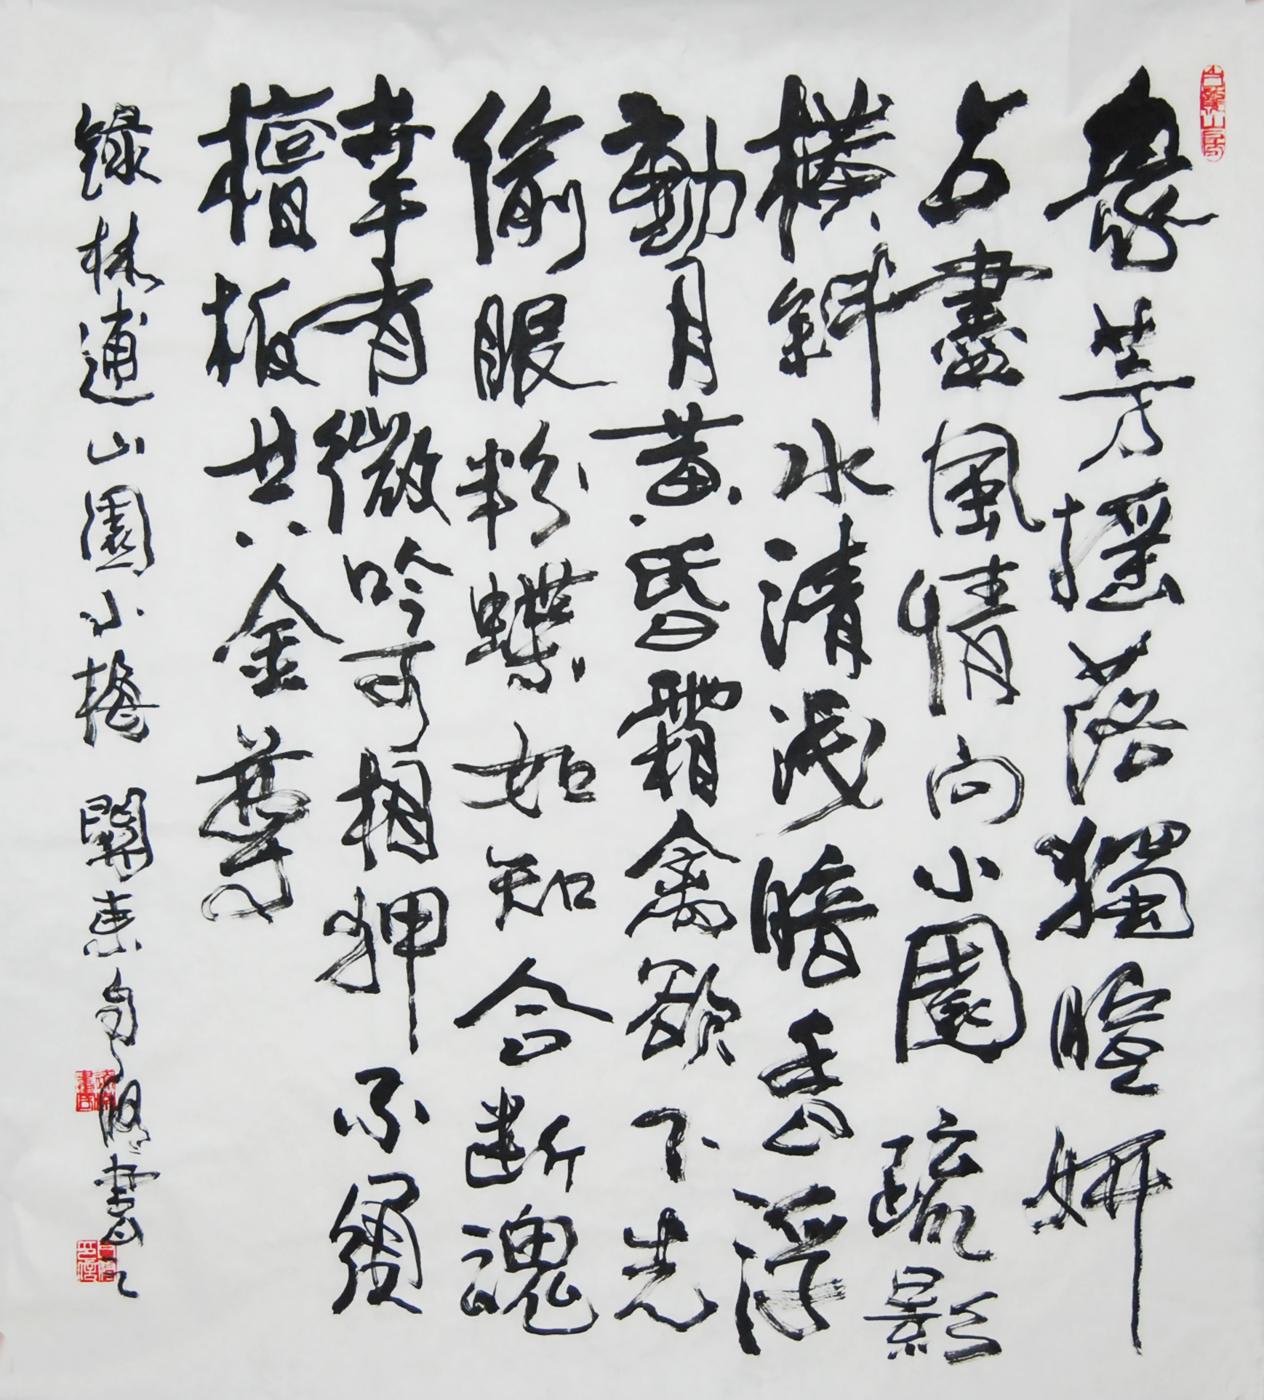 眾芳搖落獨暄妍
占盡風情向小園疏影
橫斜水清淺暗香浮
動月黃昏霜禽欲下先
偷眼粉蝶如知合斷魂
幸有微吟可相狎不須
檀板共金尊
錄林逋山園小梅 關東